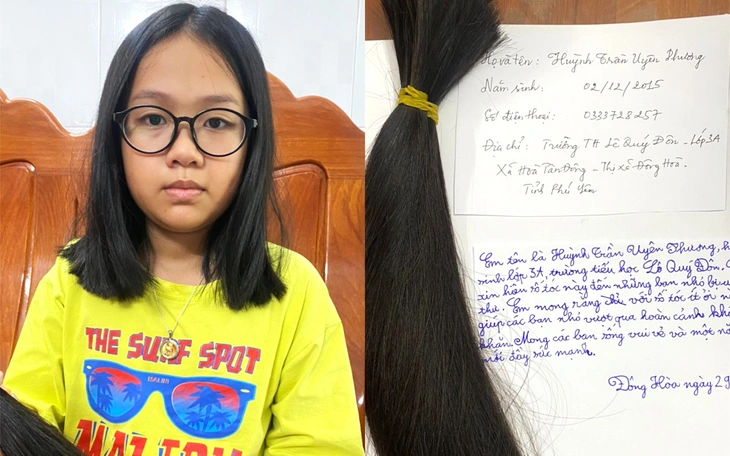 THE SURF SPOT
MALIBU
Họ và tên: Huỳnh Trần Uyên Phương
Năm sinh: 02/12/2015
Số điện thoại: 0333728257
Địa chỉ: Trường TH Lê Quý Đôn - Lớp 3A
Xã Hoà Tân Đông - Thị xã Đông Hoà -
Tỉnh Phú Yên
Em tên là Huỳnh Trần Uyên Phương, h
sinh lớp 3A, trường tiểu học Lê Quý Đôn.
xin hiến tố tóc này đến những bạn nhỏ bị u
thư. Em mong rằng dù với tố tóc
giúp các bạn nhỏ vượt qua hoàn cảnh khó
khăn. Mong các bạn sống vui vẻ và một
mới đầy sức mạnh.
Đông Hòa ngày 29